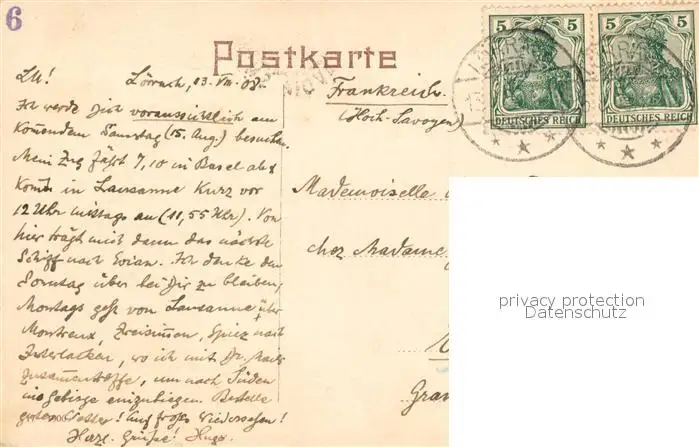 6
Postkarte
5 5 5 5
DEUTSCHES REICH DEUTSCHES REICH
L.M! Lörrach, 13. VIII. 08.
Ich werde Dich voraussichtlich am
kommenden Samstag (15. Aug.) besuchen.
Mein Zug fährt 7,10 in Basel ab &
kommt in Lausanne kurz vor
12 Uhr mittags an (11,55 Uhr). Von
hier trägt mich dann das nächste
Schiff nach Evian. Ich denke den
Sonntag über bei Dir zu bleiben,
Montags geht's von Lausanne über
Montreux, Zweisimmen, Spiez nach
Interlaken, wo ich mit Dr.
zusammentreffe, um nach Süden
ins Gebirge einzubiegen. Bestelle
gutes Wetter! Auf frohes Wiedersehen!
Herzl. Grüße! Hugo.
Frankreich
(Hoch-Savoyen)
Mademoiselle
chez Madame
Gran
privacy protection
Datenschutz